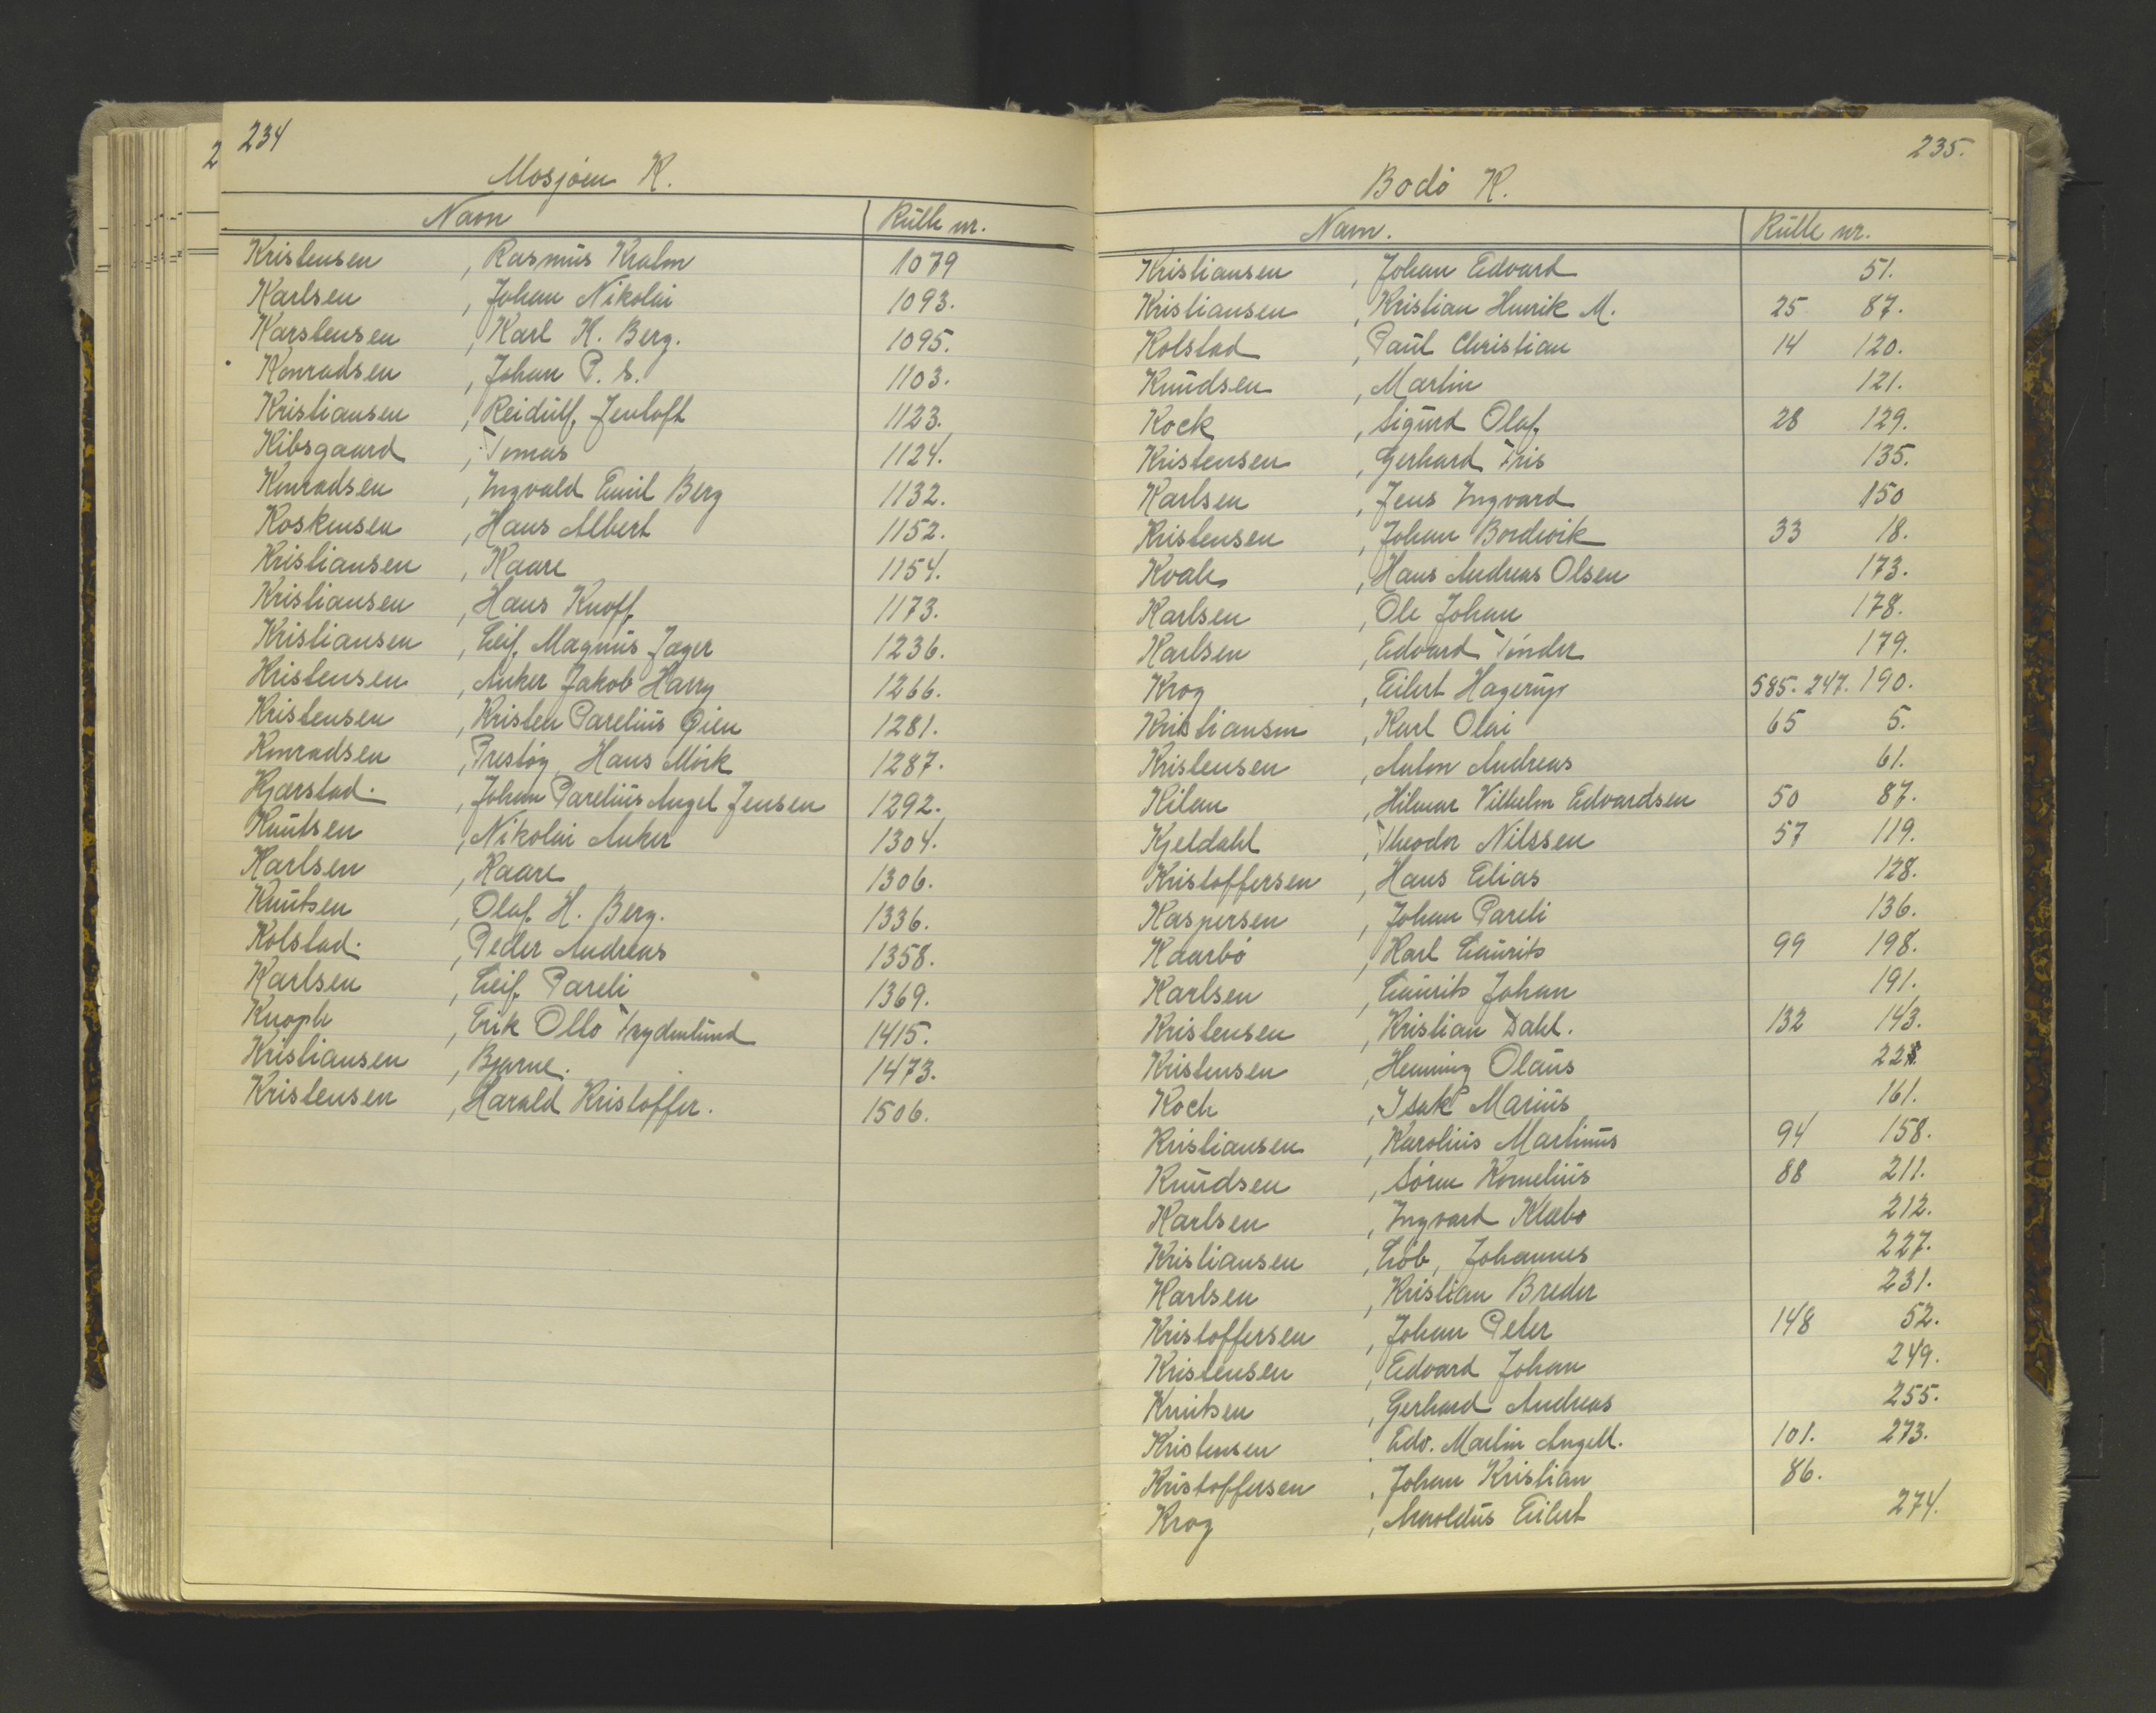 234
Mosjøen K.
Navn Rulle nr.
Kristensen, Rasmus Kralm 1079
Karlsen, Johan Nikolai 1093.
Karstensen, Karl K. Berg. 1095.
Konradsen, Johan P. S. 1103.
Kristiansen, Reidulf Jentoft 1123.
Kibsgaard, Tomas 1124.
Konradsen, Ingvald Emil Berg 1132.
Koskensen, Hans Albert 1152.
Kristiansen, Kaare 1154.
Kristiansen, Hans Knoff 1173.
Kristiansen, Leif Magnus Jæger 1236.
Kristensen, Anker Jakob Harry 1266.
Kristensen, Kristen Parelius Øien 1281.
Konradsen, Prestøy, Hans Mörk 1287.
Kjærstad., Johan Parelius Angel Jensen 1292.
Knutsen, Nikolai Anker 1304.
Karlsen, Kaare 1306.
Knutsen, Olaf H. Berg. 1336.
Kolstad., Peder Andreas 1358.
Karlsen, Leif Pareli 1369.
Knoph, Erik Otto Frydenlund 1415.
Kristiansen, Bjarne. 1473.
Kristensen, Harald Kristoffer. 1506.
235.
Bodö K.
Navn. Rulle nr.
Kristiansen, Johan Edvard 51.
Kristiansen, Kristian Henrik M. 25 87.
Kolstad, Paul Christian 14 120.
Knudsen, Martin 121.
Kock, Sigurd Olaf 28 129.
Kristensen, Gerhard Friis 135.
Karlsen, Jens Ingvard 150
Kristensen, Johan Bordevik 33 18.
Kvale, Hans Andreas Olsen 173.
Karlsen, Ole Johan 178.
Karlsen, Edvard Tönder 179.
Krog, Eilert Hagerup 585. 247. 190.
Kristiansen, Karl Olai 65 5.
Kristensen, Anton Andreas 61.
Kilen, Hilmar Vilhelm Edvardsen 50 87.
Kjeldahl, Theodor Nilssen 57 119.
Kristoffersen, Hans Elias 128.
Kaspersen, Johan Pareli 136.
Kaarbö, Karl Laurits 99 198.
Karlsen, Laurits Johan 191.
Kristensen, Kristian Dahl. 132 143.
Kristensen, Henning Olaus
Koch, Isak Marius 161.
Kristiansen, Karolius Martinus 94 158.
Knudsen, Sören Kornelius 88 211.
Karlsen, Ingvard Klæbo 212.
Kristiansen, Löb, Johannes 227.
Karlsen, Kristian Breder 231.
Kristoffersen, Johan Peter 148 52.
Kristensen, Edvard Johan 249.
Knutsen, Gerhard Andreas 255.
Kristensen, Edv. Martin Angell. 101. 273.
Kristoffersen, Johan Kristian 86.
Krog, Arnoldus Eilert 274.